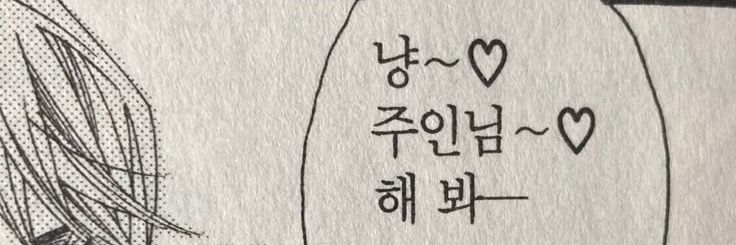 냥~♡
주인님~♡
해 봐—